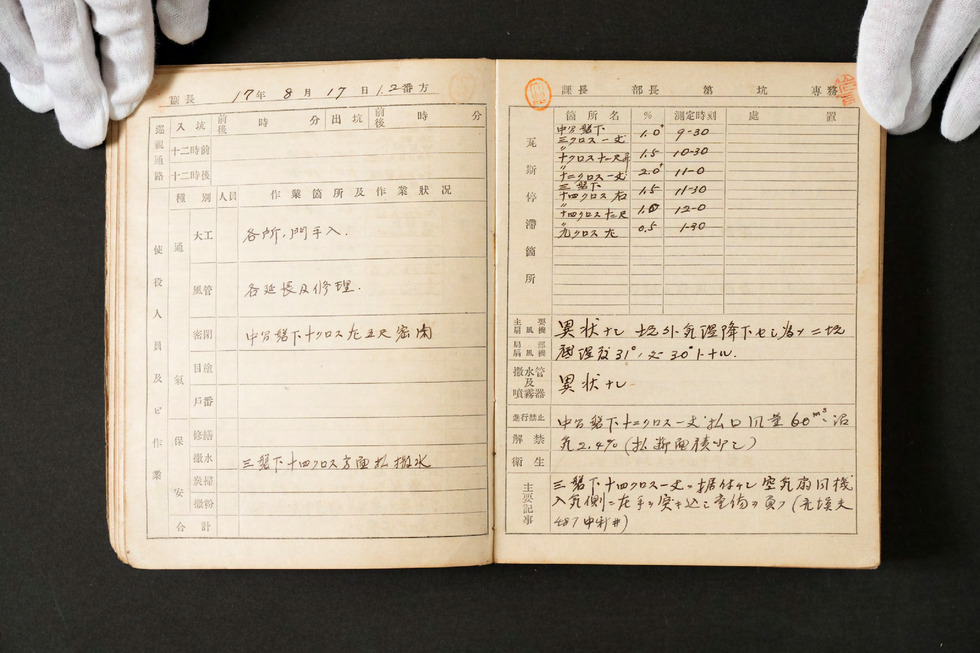 副長 17年 8月 17日 1.2番方
巡視通路 入坑 前後 時 分 出坑 前後 時 分
十二時前
十二時後
使役人員及ビ作業
種別 人員 作業箇所及作業状況
通気
大工 各所、門手入.
風管 各延長及修理.
密閉 中分盤下十クロス左五尺密閉
目塗
戸番
保安
修繕
撒水 三盤下十四クロス方面払撒水
炭掃
撒粉
合計
課長 部長 第 坑 専務
瓦斯停滞箇所
箇所名 % 測定時刻 処置
中分盤下
三クロス一丈 1.0 9-30
〃
1.5 10-30
〃
十二クロス一丈 2.0 11-0
三盤下
十四クロス右 1.5 11-30
〃
1.0 12-0
〃
九クロス左 0.5 1-30
主要扇風機
局部扇風機
異状ナシ 坑外気温降下セシ為メニ坑
内温度31°乃至30°トナル.
撒水管及噴霧器 異状ナシ
進行禁止
解禁
中分盤下十二クロス一丈払口風量60m³ 沼
気2.4%
衛生
主要記事
三盤下十四クロス一丈ニ据付ケシ空気扇風機
入気側ニ左手ヲ突キ込ミ重傷ヲ負フ